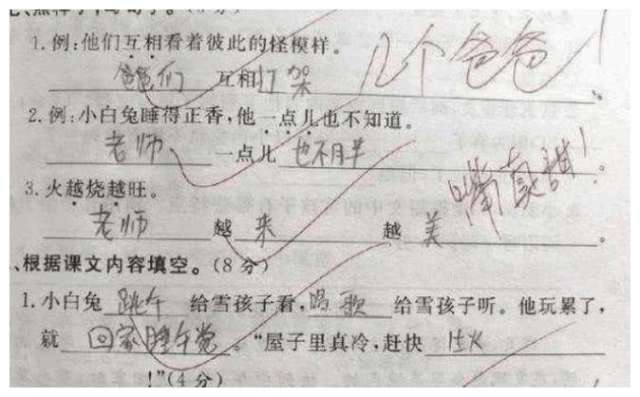 1. 例:他们互相看着彼此的怪模样。
爸爸们 互相打架。 几个爸爸!
2. 例:小白兔睡得正香,他一点儿也不知道。
老师 一点儿 也不胖。 嘴真甜!
3. 火越烧越旺。
老师 越 来 越 美。
、根据课文内容填空。(8分)
1. 小白兔 跳午 给雪孩子看,唱歌 给雪孩子听。他玩累了,
就 回家睡午觉。“屋子里真冷,赶快 生火
!”(4分)